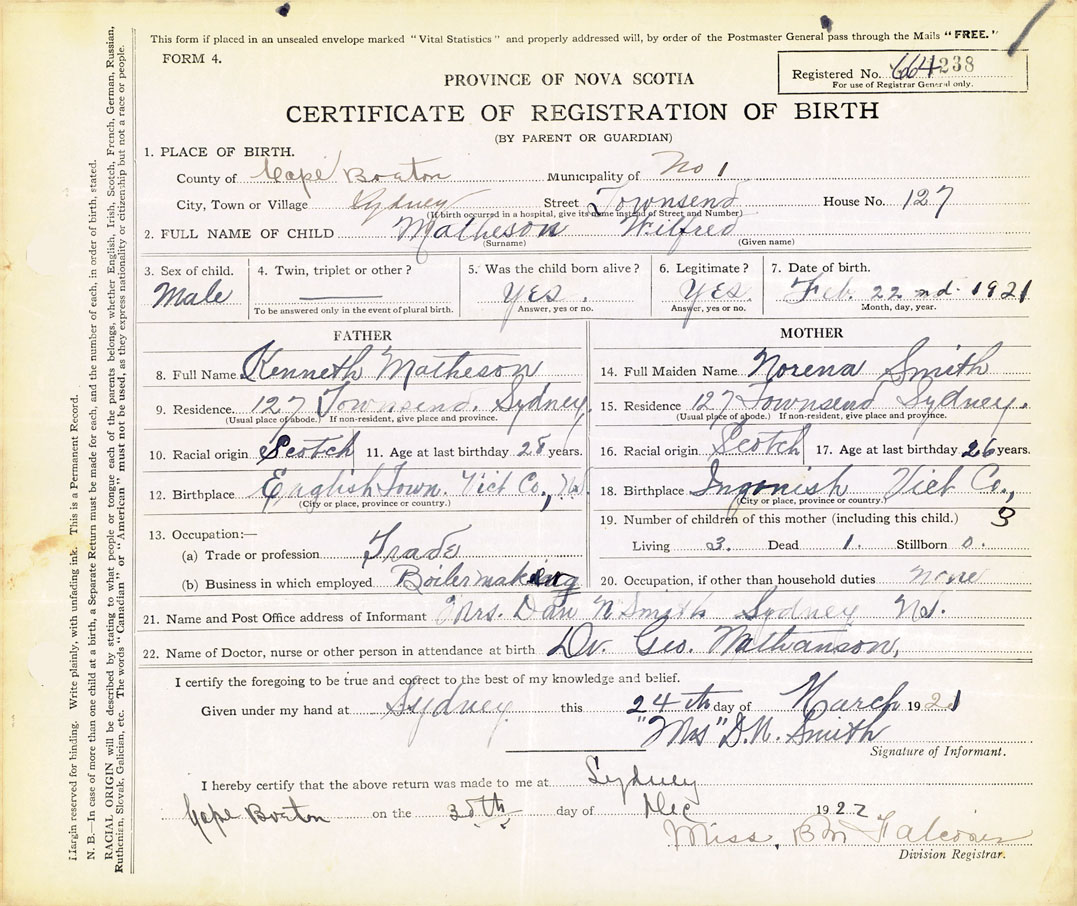 This form if placed in an unsealed envelope marked "Vital Statistics" and properly addressed will, by order of the Postmaster General pass through the Mails "FREE."
FORM 4.
Registered No. 664238
For use of Registrar General only.
PROVINCE OF NOVA SCOTIA
CERTIFICATE OF REGISTRATION OF BIRTH
(BY PARENT OR GUARDIAN)
1. PLACE OF BIRTH.
County of Cape Breton Municipality of No 1
City, Town or Village Sydney Street Townsend House No. 127
(If birth occurred in a hospital, give its name instead of Street and Number)
2. FULL NAME OF CHILD Matheson Wilfred
(Surname) (Given name)
3. Sex of child. 4. Twin, triplet or other? 5. Was the child born alive? 6. Legitimate? 7. Date of birth.
Male —— Yes. Yes. Feb. 22nd. 1921
To be answered only in the event of plural birth. Answer, yes or no. Answer, yes or no. Month, day, year.
FATHER
8. Full Name Kenneth Matheson
9. Residence. 127 Townsend. Sydney.
(Usual place of abode.) If non-resident, give place and province.
10. Racial origin Scotch 11. Age at last birthday 28 years.
12. Birthplace English Town. Vict Co., N.S.
(City or place, province or country.)
13. Occupation:—
(a) Trade or profession Trade
(b) Business in which employed Boilermaking
MOTHER
14. Full Maiden Name Norena Smith
15. Residence 127 Townsend Sydney.
(Usual place of abode.) If non-resident, give place and province.
16. Racial origin Scotch 17. Age at last birthday 26 years.
18. Birthplace Ingonish Vict Co.,
(City or place, province or country.)
19. Number of children of this mother (including this child.) 3
Living 3. Dead 1. Stillborn 0.
20. Occupation, if other than household duties none
21. Name and Post Office address of Informant Mrs. Dan N Smith Sydney N.S.
22. Name of Doctor, nurse or other person in attendance at birth Dr. Geo. Nathanson,
I certify the foregoing to be true and correct to the best of my knowledge and belief.
Given under my hand at Sydney this 24th day of March 1921
"Mrs" D.N. Smith
Signature of Informant.
I hereby certify that the above return was made to me at Sydney
Cape Breton on the 30th day of Dec 1922
Miss. B M Falconer
Division Registrar.
Margin reserved for binding. Write plainly, with unfading ink. This is a Permanent Record.
N. B.—In case of more than one child at a birth, a Separate Return must be made for each, and the number of each, in order of birth, stated.
RACIAL ORIGIN will be described by stating to what people or tongue each of the parents belongs, whether English, Irish, Scotch, French, German, Russian,
Ruthenian, Slovak, Galician, etc. The words "Canadian" or "American" must not be used, as they express nationality or citizenship but not a race or people.